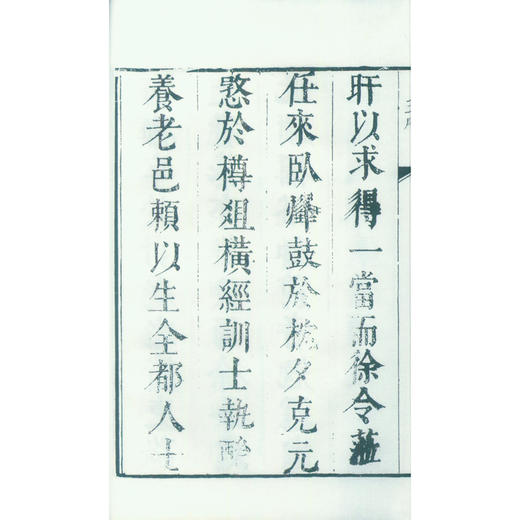 盰以求得一當而徐令蒞
任來臥爝鼓於桅夕克元
憝於樽俎橫經訓士執酳
養老邑賴以生全都人士